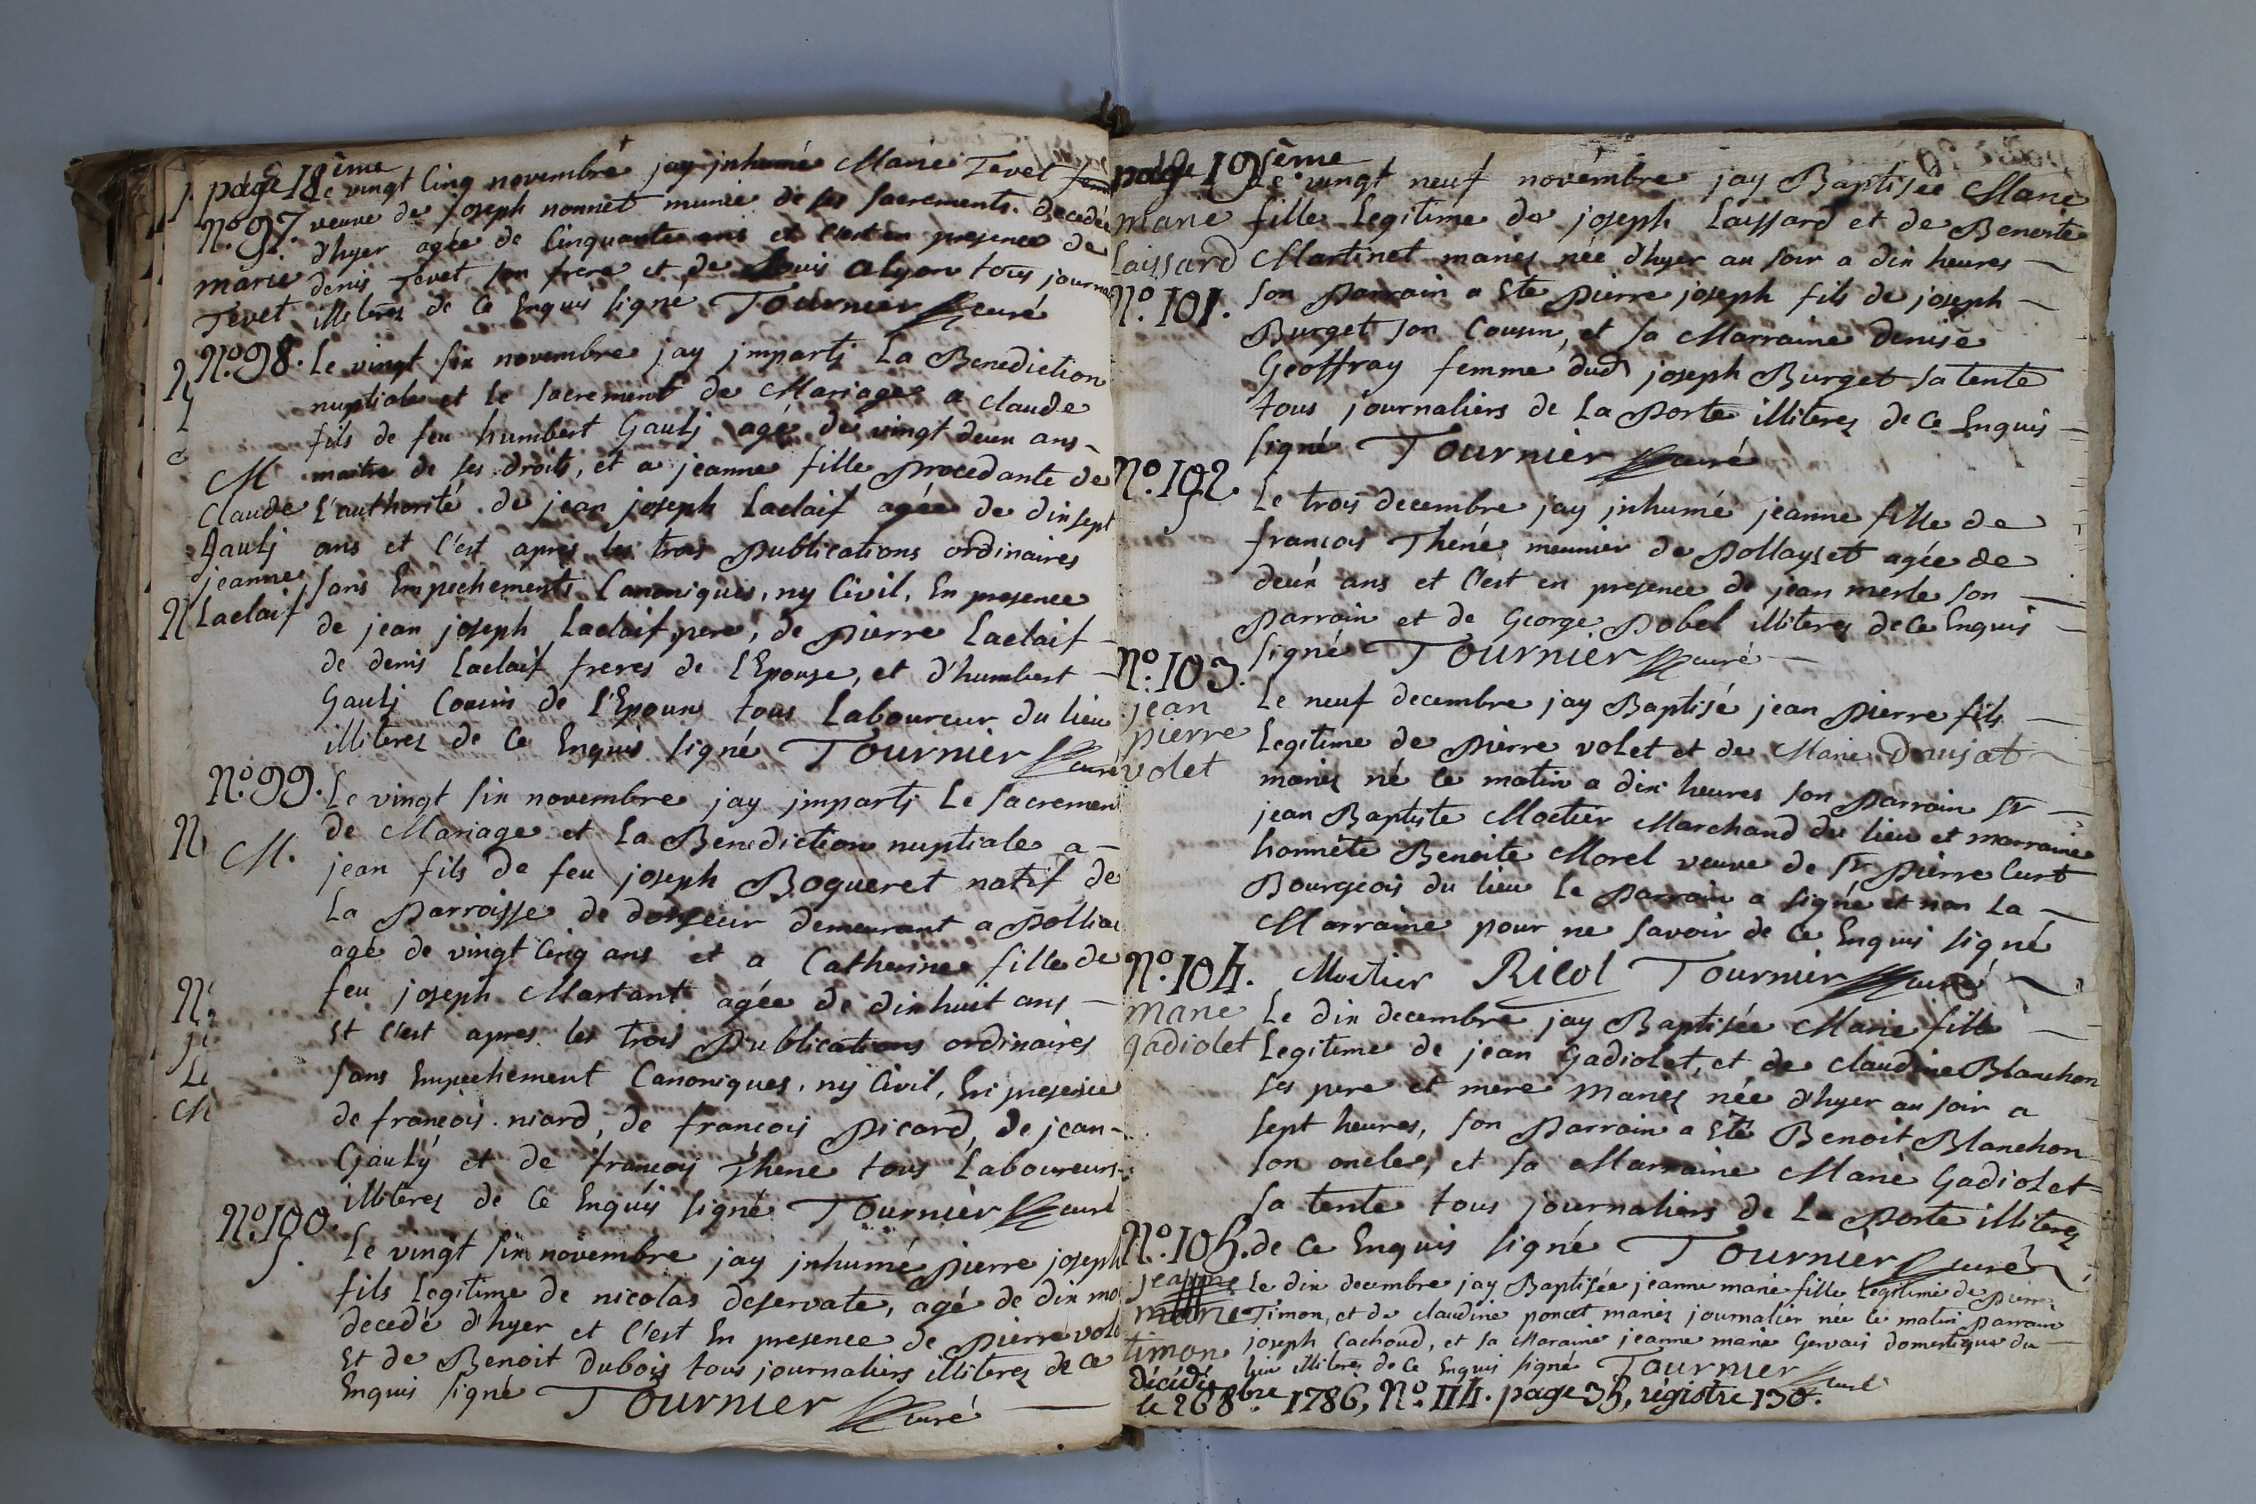 page 18ème
Le vingt Cinq novembre jay jnhumé Marie Tevet
N.° 97. veuve de joseph nonnet munie de ses sacrements. decedée
d'hyer agée de Cinquante ans et c'est en presence de
marie denis Tevet son frere et de Louis alyon tous
Tevet illiterez de Ce Enquis signé Tournier curé
N.° 98. Le vingt six novembre jay jmpartj La Benediction
nuptiale et le sacrement de Mariage a claude
fils de feu humbert Gaulj agé de vingt deux ans
M maitre de ses droits, et a jeanne fille procedante de
Claude L'authorité de jean joseph Laclaif agée de dix sept
gaulj ans et C'est apres les trois publications ordinaires
jeanne sans Empechements Canoniques, ny Civil, En presence
Laclaif de jean joseph Laclaif pere, de pierre Laclaif
de denis Laclaif freres de l'Epouse, et d'humbert
Gaulj Cousin de l'Epoux tous Laboureur du lieu
illiterez de Ce Enquis signé Tournier curé
N.° 99. Le vingt six novembre jay jmpartj Le sacremen
M. de Mariage et la Benediction nuptiale a
jean fils de feu joseph Boqueret natif de
La parroisse de demeurant a
agé de vingt Cinq ans et a Catherine fille de
feu joseph Martant agée de dix huit ans
Et C'est apres les trois publications ordinaires
sans Empechement Canoniques, ny Civil, En presence
de françois niard, de francois picard, de jean
Gauly et de françois thene tous Laboureurs
illiterez de Ce Enquis signé Tournier curé
N.° 100.
S. Le vingt six novembre jay jnhumé pierre joseph
fils Legitime de nicolas deservate, agé de dix mo
decedé d'hyer et C'est En presence de pierre vol
Et de Benoit dubois tous journaliers illiterez de Ce
Enquis signé Tournier curé
page 19ème
Le vingt neuf novembre jay Baptisée Marie
marie fille Legitime de joseph Laissard et de Benoite
Laissard Martinet mariez née d'hyer au soir a dix heures
N.° 101. son parrain a Eté pierre joseph fils de joseph
Burget son Cousin, et sa Marraine denise
Geoffray femme dud joseph Burget sa tente
tous journaliers de La porte illiterez de Ce Enquis
signé Tournier curé
N.° 102.
S Le trois decembre jay jnhumé jeanne fille de
françois Thené meunier de agée de
deux ans et C'est en presence de jean merle son
parrain et de George pobel illiterez de Ce Enquis
signé Tournier curé
N.° 103.
jean Le neuf decembre jay Baptisé jean pierre fils
pierre Legitime de pierre volet et de Marie
volet mariez né Ce matin a dix heures son parrain Sr
jean Baptiste Moctier Marchand du lieu et marraine
honnête Benoite Morel veuve de Sr pierre Curt
Bourgeois du lieu Le parrain a signé et non La
Marraine pour ne savoir de Ce Enquis signé
N.° 104. Moctier Ricol Tournier curé
marie Le dix decembre jay Baptisée Marie fille
gadiolet Legitime de jean Gadiolet, et de claudine Blanchon
ses pere et mere mariez née d'hyer au soir a
sept heures, son parrain a Eté Benoit Blanchon
son oncle, et sa Marraine Marie Gadiolet
sa tente tous journaliers de La porte illiterez
N.° 105. de Ce Enquis signé Tournier curé
jeanne Le dix decembre jay Baptisée jeanne marie fille Legitime de pierre
marie Timon, et de claudine poncet mariez journalier née Ce matin parrain
timon joseph Cachoud, et sa Maraine jeanne marie Gervais domestique du
lieu illiterez de Ce Enquis signé Tournier curé
décédée
le 26 8bre 1786, N.° 114. page 35, registre 130.